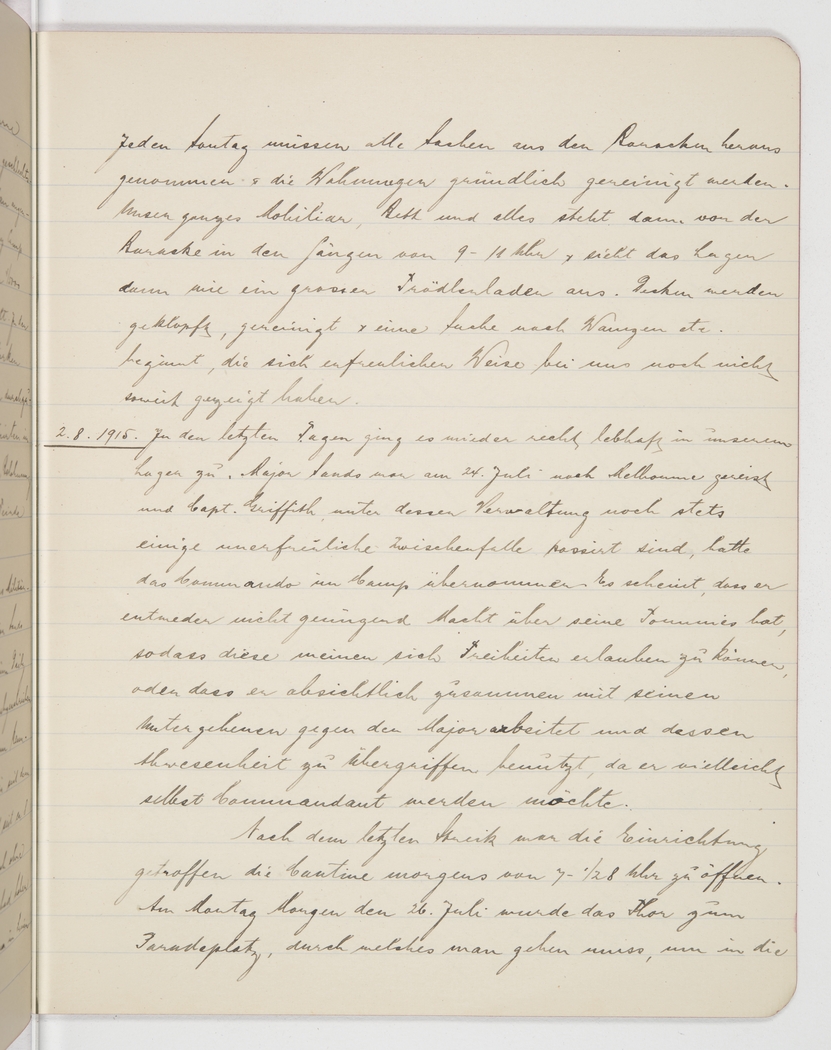 Jeden Sontag müssen alle Sachen aus den Baracken heraus
genommen & die Wohnungen gründlich gereinigt werden.
Unser ganzes Mobiliar, Bett und alles steht dann vor der
Baracke in den Gängen von 9 - 11 Uhr & sieht das Lager
dann wie ein grosser Trödlerladen aus. Decken werden
geklopft, gereinigt & eine Suche nach Wanzen etc.
beginnt, die sich erfreulicher Weise bei uns noch nicht
soweit gezeigt haben.
2.8.1915. In den letzten Tagen ging es wieder recht lebhaft in unserem
Lager zu. Major Sands war am 24. Juli nach Melbourne gereist
und Capt. Griffith, unter dessen Verwaltung noch stets
einige unerfreuliche Zwischenfälle passirt sind, hatte
das Commando im Camp übernommen. Es scheint, dass er
entweder nicht genügend Macht über seine Tommies hat,
sodass diese meinen sich Freiheiten erlauben zu können,
oder dass er absichtlich zusammen mit seinen
Untergebenen gegen den Major arbeitet und dessen
Abwesenheit zu Übergriffen benutzt, da er vielleicht
selbst Commandant werden möchte.
Nach dem letzten Streik war die Einrichtung
getroffen die Cantine morgens von 7 - 1/28 Uhr zu öffnen.
Am Montag Morgen den 26. Juli wurde das Thor zum
Paradeplatz, durch welches man gehen muss, um in die